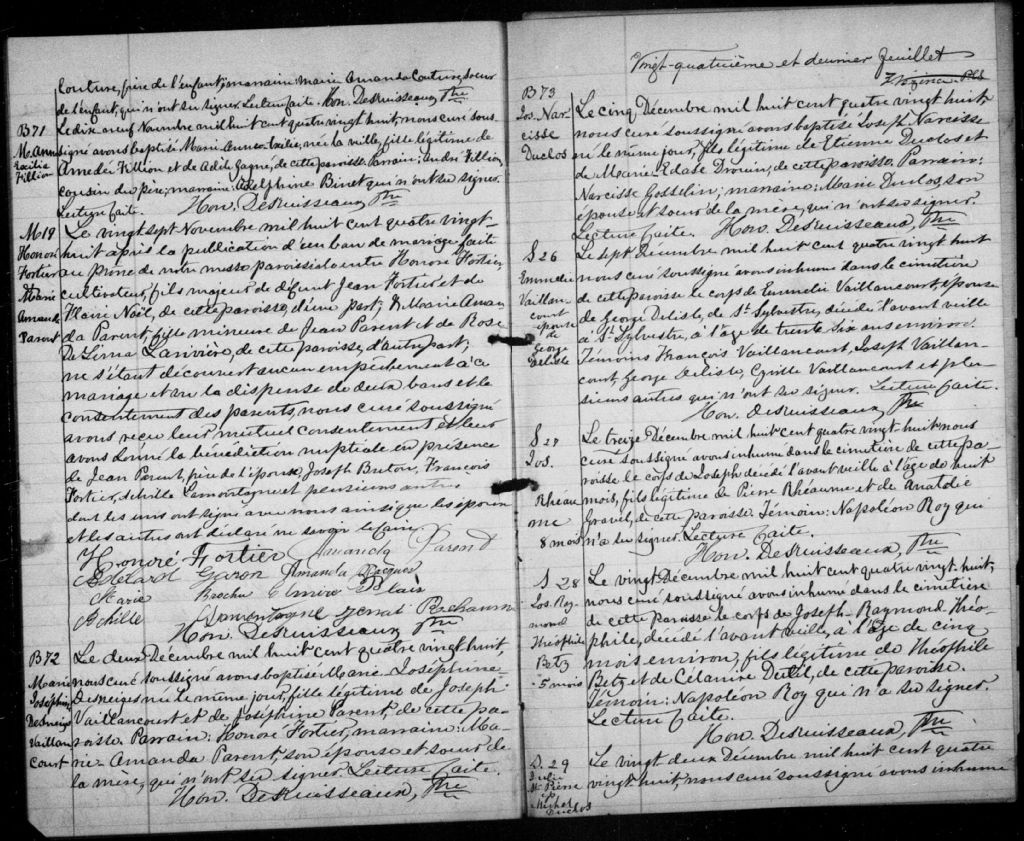 Couture, frère de l'enfant; marraine: Marie Amanda Couture, soeur
de l'enfant, qui n'ont su signer. Lecture faite. Hon. DesRuisseaux, Ptre
B71
M. Anne
Exélie
Fillion
Le dix neuf Novembre mil huit cent quatre vingt huit, nous curé sous-
signé avons baptisé Marie Anne Exélie, née la veille, fille légitime de
Amedée Fillion et de Adèle Gagné, de cette paroisse. Parrain: André Fillion,
cousin du père; marraine: Adelphine Binet qui n'ont su signer.
Lecture faite. Hon. DesRuisseaux, Ptre
M19
Honoré
Fortier
&
Marie
Amanda
Parent
Le vingt sept Novembre mil huit cent quatre vingt-
huit après la publication d'un ban de mariage faite
au prône de notre messe paroissiale entre Honoré Fortier,
cultivateur, fils majeur de défunt Jean Fortier et de
Marie Noël, de cette paroisse, d'une part; & Marie Aman
da Parent, fille mineure de Jean Parent et de Rose
De Lima Larivière, de cette paroisse, d'autre part;
ne s'étant découvert aucun empêchement à ce
mariage et vu la dispense de deux bans et le
consentement des parents, nous curé soussigné
avons reçu leur mutuel consentement et leur
avons donné la bénédiction nuptiale en présence
de Jean Parent, père de l'épouse, Joseph Breton, François
Fortier, Achille Lamontagne et plusieurs autres
dont les uns ont signé avec nous ainsi que les époux
et les autres ont déclaré ne savoir le faire.
Honoré Fortier Amanda Parend
Adélard Garon Amanda Jacques
Marie Brochu Elmire Blais
Achille Lamontagne Rehaume
Hon. DesRuisseaux Ptre
B72
Marie
Joséphine
Desneiges
Vaillan
court
Le deux Décembre mil huit cent quatre vingt huit,
nous curé soussigné avons baptisé Marie Joséphine
Desneiges née le même jour, fille légitime de Joseph
Vaillancourt et de Joséphine Parent, de cette pa-
roisse. Parrain: Honoré Fortier, marraine: Ma-
rie Amanda Parent, son épouse et soeur de
la mère, qui n'ont su signer. Lecture faite.
Hon. DesRuisseaux, Ptre
Vingt-quatrième et dernier feuillet
B73
Jos. Nar-
cisse
Duclos
Le cinq Décembre mil huit cent quatre vingt huit,
nous curé soussigné avons baptisé Joseph Narcisse
né le même jour, fils légitime de Etienne Duclos et
de Marie Edase Drouin, de cette paroisse. Parrain:
Narcisse Gosselin; marraine: Marie Duclos, son
épouse et soeur de la mère, qui n'ont su signer.
Lecture faite. Hon. DesRuisseaux, Ptre
S 26
Emmelie
Vaillan-
court
épouse
de
George
Delisle
Le sept Décembre mil huit cent quatre vingt huit
nous curé soussigné avons inhumé dans le cimetière
de cette paroisse le corps de Emmelie Vaillancourt, épouse
de George Delisle, de St. Sylvestre, décédée l'avant veille
à St. Sylvestre, à l'âge de trente six ans environ.
Témoins François Vaillancourt, Joseph Vaillan-
court, George Delisle, Cyrille Vaillancourt et plu-
sieurs autres qui n'ont su signer. Lecture faite.
Hon. DesRuisseaux Ptre
S 27
Jos.
Rheau
me
8 mois
Le treize Décembre mil huit cent quatre vingt huit nous
curé soussigné avons inhumé dans le cimetière de cette pa-
roisse le corps de Joseph décédé l'avant veille à l'âge de huit
mois, fils légitime de Pierre Rhéaume et de Anatolie
Gravel, de cette paroisse. Témoin: Napoléon Roy qui
n'a su signer. Lecture faite.
Hon. DesRuisseaux, Ptre
S. 28
Jos. Ray
mond
Théophile
Betz
5 mois
Le vingt Décembre mil huit cent quatre vingt huit,
nous curé soussigné avons inhumé dans le cimetière
de cette paroisse le corps de Joseph Raymond Théo-
phile, décédé l'avant veille, à l'âge de cinq
mois environ, fils légitime de Théophile
Betz et de Célanire Dutil, de cette paroisse.
Témoin: Napoléon Roy qui n'a su signer.
Lecture faite.
Hon. DesRuisseaux, Ptre
S. 29
Julie
St. Pierre
Michel
Duclos
Le vingt deux Décembre mil huit cent quatre
vingt huit, nous curé soussigné avons inhumé